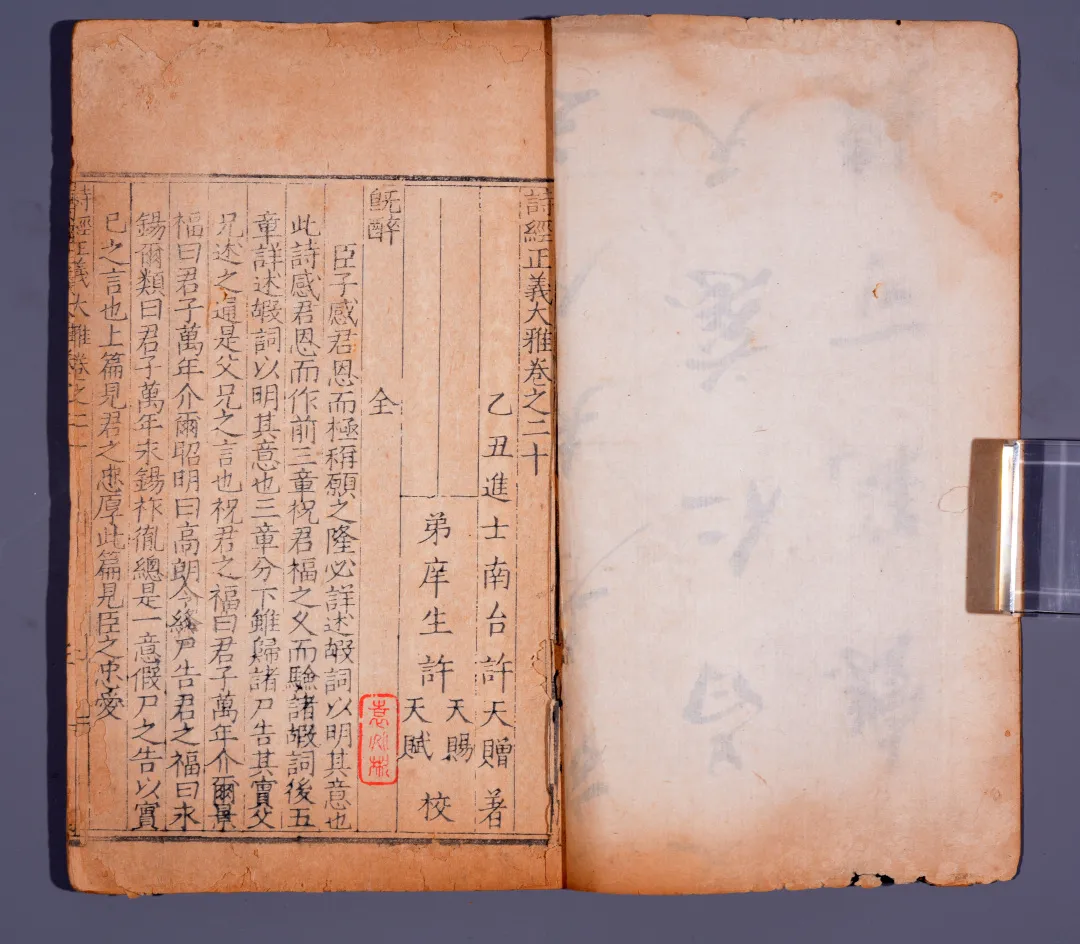 詩經正義大雅卷之二十
乙丑進士南台許天贈著
弟庠生許天賜天賦校
旣醉
全
臣子感君恩而極稱願之隆必詳述嘏詞以明其意也
此詩感君恩而作前三章祝君福之久而驗諸嘏詞後五
章詳述嘏詞以明其意也三章分下雖歸諸尸告其實父
兄述之通是父兄之言也祝君之福曰君子萬年介爾景
福曰君子萬年介爾昭明曰高朗令終尸告君之福曰永
錫爾類曰君子萬年永錫祚胤總是一意假尸之告以實
已之言也上篇見君之忠厚此篇見臣之忠愛
詩經正義大雅卷之二